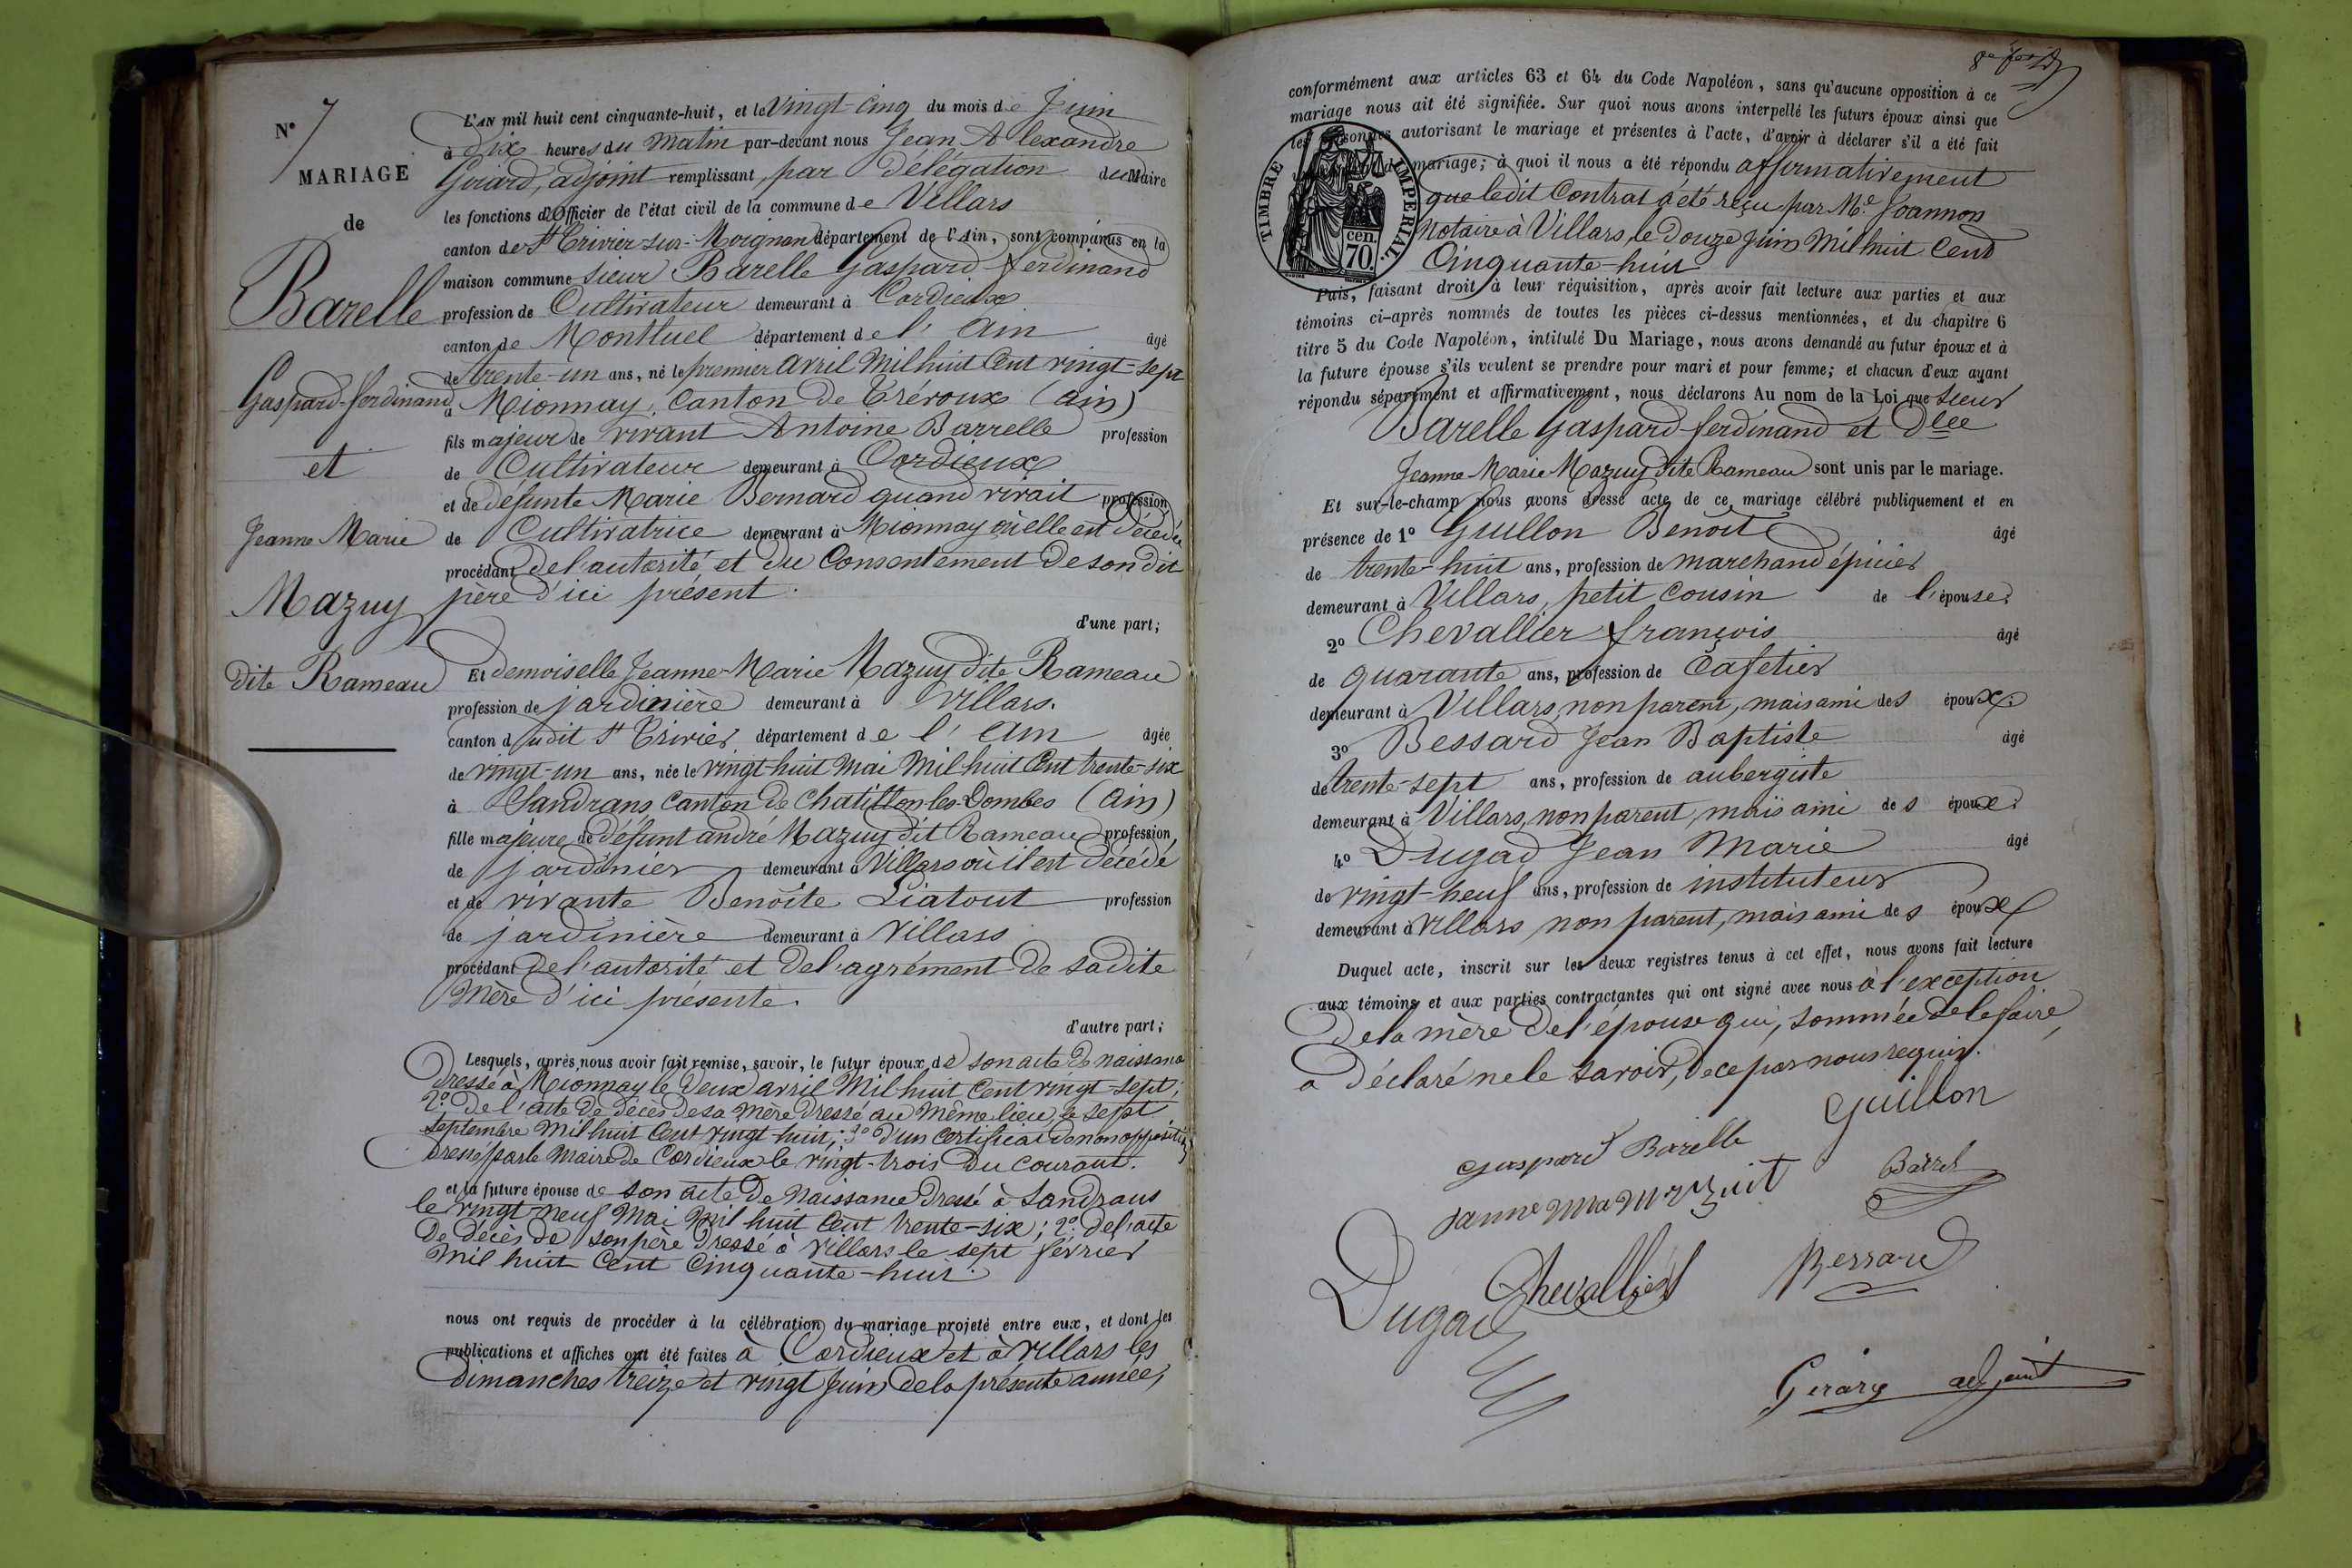 N° 7
MARIAGE
de
Barelle
Gaspard-ferdinand
et
Jeanne Marie
Mazuy
dite Rameau
L'AN mil huit cent cinquante-huit, et le vingt-cinq du mois de Juin
à dix heures du matin par-devant nous Jean Alexandre
Girard, adjoint remplissant, par délégation du Maire
les fonctions d'Officier de l'état civil de la commune de Villars
canton de St Trivier-sur-Moignans département de l'Ain, sont comparus en la
maison commune sieur Barelle Gaspard ferdinand
profession de Cultivateur demeurant à Cordieux
canton de Montluel département de l'Ain âgé
de trente-un ans, né le premier avril mil huit cent vingt-sept
à Mionnay, Canton de Trévoux (Ain)
fils majeur de vivant Antoine Barrelle profession
de Cultivateur demeurant à Cordieux
et de défunte Marie Bernard quand vivait profession
de Cultivatrice demeurant à Mionnay où elle est décédée
procédant de l'autorité et du Consentement de son dit
père d'ici présent.
d'une part;
Et demoiselle Jeanne-Marie Mazuy dite Rameau
profession de jardinière demeurant à Villars.
canton dudit St Trivier département de l'Ain âgée
de vingt-un ans, née le vingt-huit mai mil huit cent trente-six
à Sandrans canton de Chatillon-les-Dombes (Ain)
fille majeure de défunt andré Mazuy dit Rameau profession,
de jardinier demeurant à Villars où il est décédé
et de vivante Benoîte Liatout profession
de jardinière demeurant à Villars
procédant de l'autorité et de l'agrément de sadite
Mère d'ici présente.
d'autre part;
Lesquels, après nous avoir fait remise, savoir, le futur époux de son acte de naissance
dressé à Mionnay le deux avril mil huit cent vingt-sept;
2° de l'acte de décès de sa mère dressé au même lieu, le sept
septembre mil huit cent vingt-huit; 3° d'un certificat de non opposition
dressé par le Maire de Cordieux le vingt-trois du courant.
et la future épouse de son acte de naissance dressé à Sandrans
le vingt-neuf mai mil huit cent trente-six; 2° de l'acte
de décès de son père dressé à Villars le sept février
mil huit cent cinquante-huit.
nous ont requis de procéder à la célébration du mariage projeté entre eux, et dont les
publications et affiches ont été faites à Cordieux et à Villars les
dimanches treize et vingt juin de la présente année,
conformément aux articles 63 et 64 du Code Napoléon, sans qu'aucune opposition à ce
mariage nous ait été signifiée. Sur quoi nous avons interpellé les futurs époux ainsi que
les personnes autorisant le mariage et présentes à l'acte, d'avoir à déclarer s'il a été fait
de mariage; à quoi il nous a été répondu affirmativement
que ledit Contrat a été reçu par Me Joannon
Notaire à Villars, le douze juin mil huit cent
Cinquante-huit
TIMBRE IMPÉRIAL.
70. cen.
Puis, faisant droit à leur réquisition, après avoir fait lecture aux parties et aux
témoins ci-après nommés de toutes les pièces ci-dessus mentionnées, et du chapitre 6
titre 5 du Code Napoléon, intitulé Du Mariage, nous avons demandé au futur époux et à
la future épouse s'ils veulent se prendre pour mari et pour femme; et chacun d'eux ayant
répondu séparément et affirmativement, nous déclarons Au nom de la Loi que sieur
Barelle Gaspard-ferdinand et Dlle
Jeanne Marie Mazuy dite Rameau sont unis par le mariage.
Et sur-le-champ nous avons dressé acte de ce mariage célébré publiquement et en
présence de 1° Guillon Benoît âgé
de trente-huit ans, profession de marchand épicier
demeurant à Villars, petit cousin de l'épouse;
2° Chevallier françois âgé
de quarante ans, profession de Cafetier
demeurant à Villars, non parent, mais ami des époux.
3° Bessard Jean Baptiste âgé
de trente-sept ans, profession de aubergiste
demeurant à Villars, non parent, mais ami des époux.
4° Dugad Jean Marie âgé
de vingt-neuf ans, profession de instituteur
demeurant à Villars non parent, mais ami des époux
Duquel acte, inscrit sur les deux registres tenus à cet effet, nous avons fait lecture
aux témoins et aux parties contractantes qui ont signé avec nous à l'exception
de la mère de l'épouse qui, sommée de le faire,
a déclaré ne le savoir, de ce par nous requis.
Guillon
Gaspard Barelle
Barrel
Janne Ma Mazuit
Bessard
Chevallier
Dugad
Girard adjoint